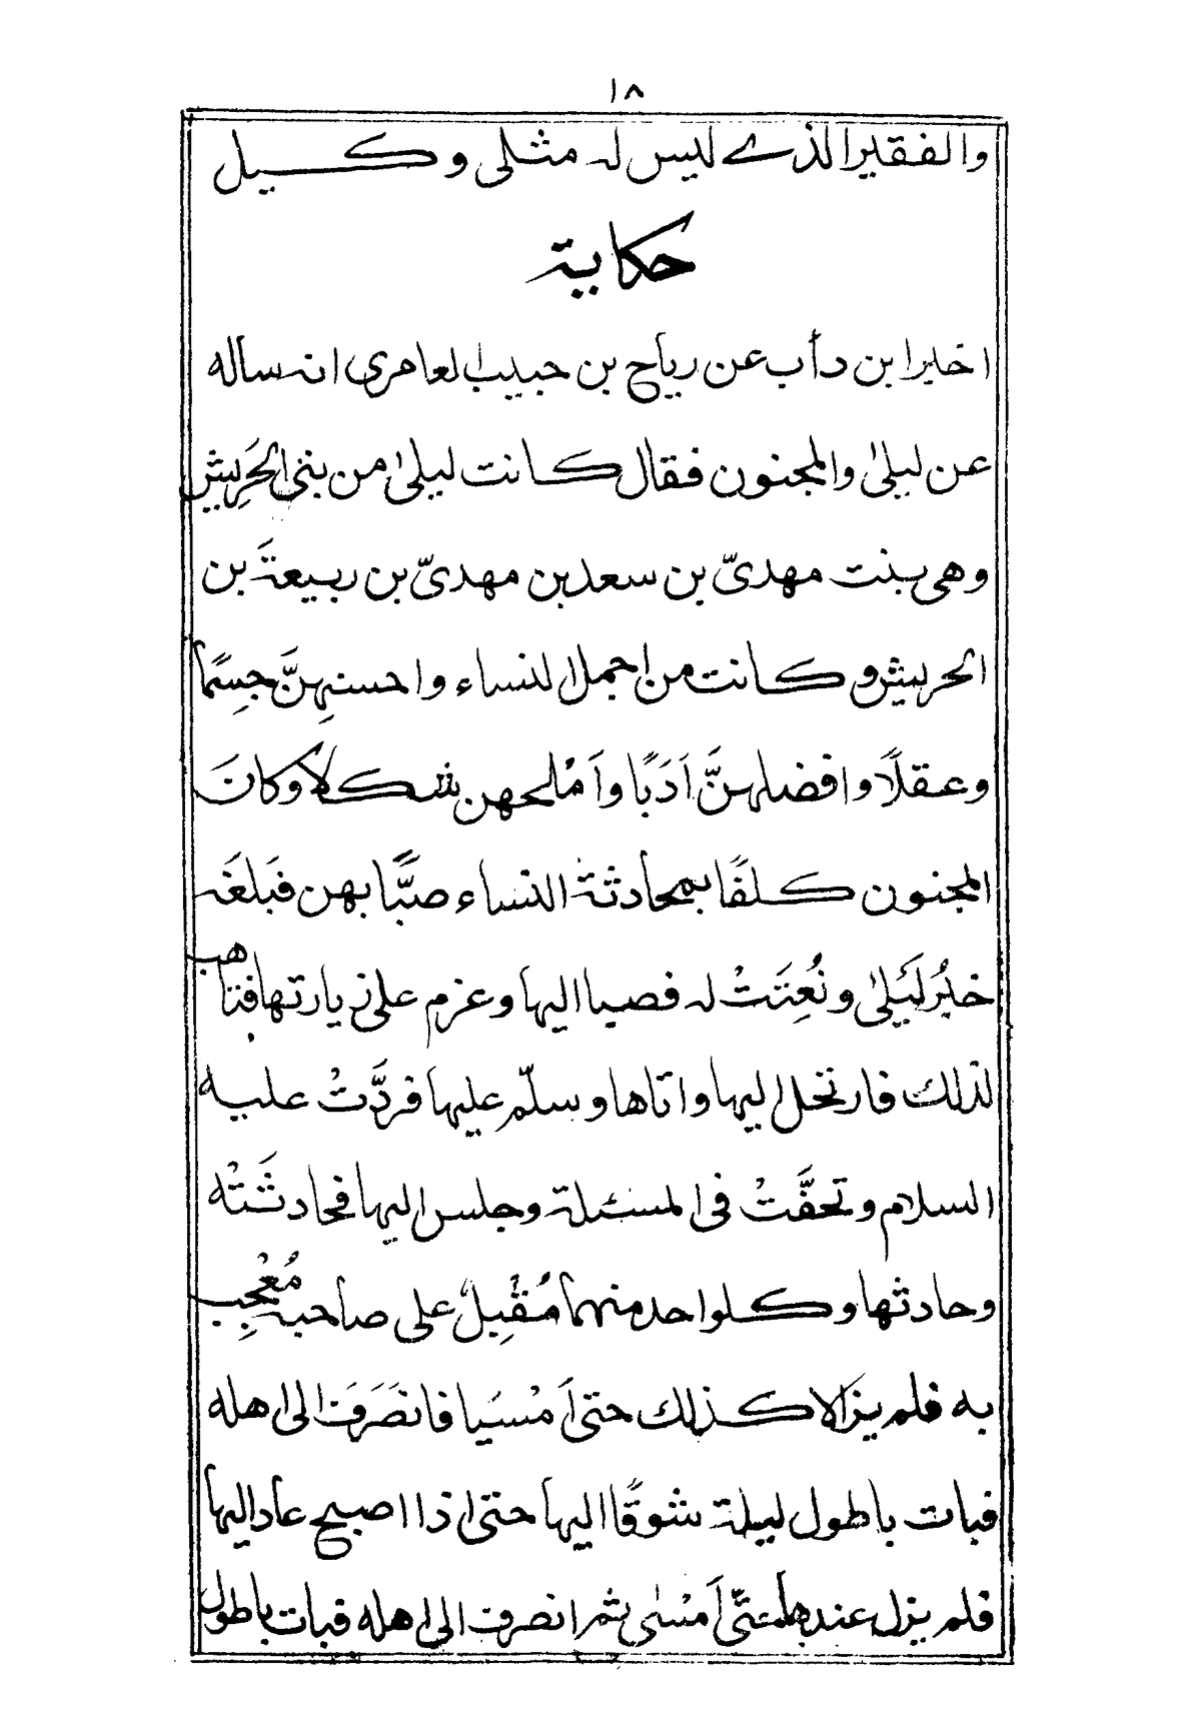 ١٨
والفقير الذے ليس له مثلى وكيل
حكاية
اخبر ابن دأب عن رياح بن حبيب العامرى انه سأله
عن ليلىٰ والمجنون فقال كانت ليلىٰ من بنى الحَرِيش
وهى بنت مهدىّ بن سعد بن مهدىّ بن ربيعةَ بن
الحريش وكانت من اجمل النساء واحسنهِنَّ جِسمًا
وعقلًا وافضلهنَّ اَدَبًا واَمْلحهن شكلا وكانَ
المجنون كلفًا بمحادثة النساء صبًّا بهن فبَلغَه
خبُر لَيَلىٰ ونُعِتَتْ له فصبا اليها وعزم على زيارتها فتاهب
لذلك فارتحل اليها واتاها وسلّم عليها فردَّتْ عليه
السلام وتحفَّتْ فى المسئلة وجلس اليها فحادثَتْه
وحادثها وكل واحد منهما مُقْبِلٌ على صاحبه مُعْجِب
به فلم يزالا كذلك حتى اَمْسَيا فانصَرَفَ الى اهله
فبات باطول ليلة شوقًا اليها حتى اذا اصبح عاد اليها
فلم يزل عندها حتّى اَمْسٰى ثم انصرف الى اهله فبات باطول